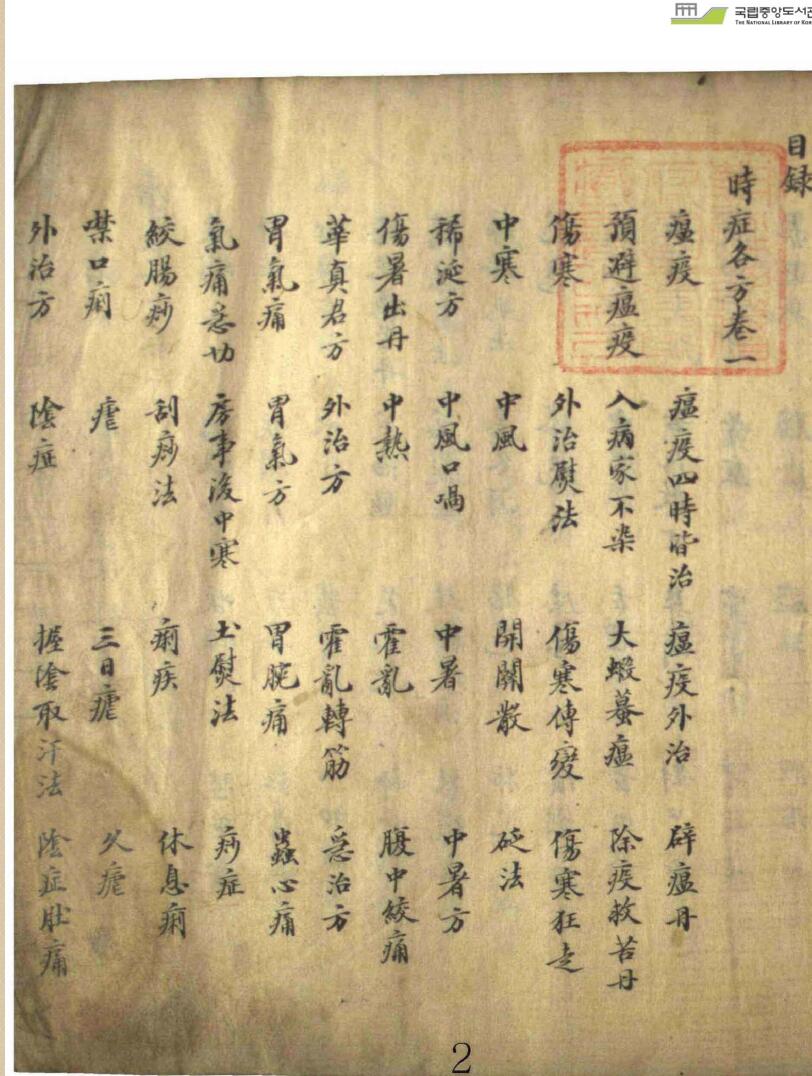 국립중앙도서관
THE NATIONAL LIBRARY OF KOR
目録
時症各方卷一
瘟疫 瘟疫四時皆治 瘟疫外治 辟瘟丹
預避瘟疫 入病家不染 大蝦蟇瘟 除疫救苦丹
傷寒 外治熨法 傷寒傳變 傷寒狂走
中寒 中風 開關散 砭法
稀涎方 中風口喎 中暑 中暑方
傷暑出丹 中熱 霍亂 腹中絞痛
華真君方 外治方 霍亂轉筋 急治方
胃氣痛 胃氣方 胃脘痛 蟲心痛
氣痛急切 房事後中寒 土熨法 痧症
絞腸痧 刮痧法 痢疾 休息痢
噤口痢 瘧 三日瘧 久瘧
外治方 陰症 握陰取汗法 陰症肚痛
2